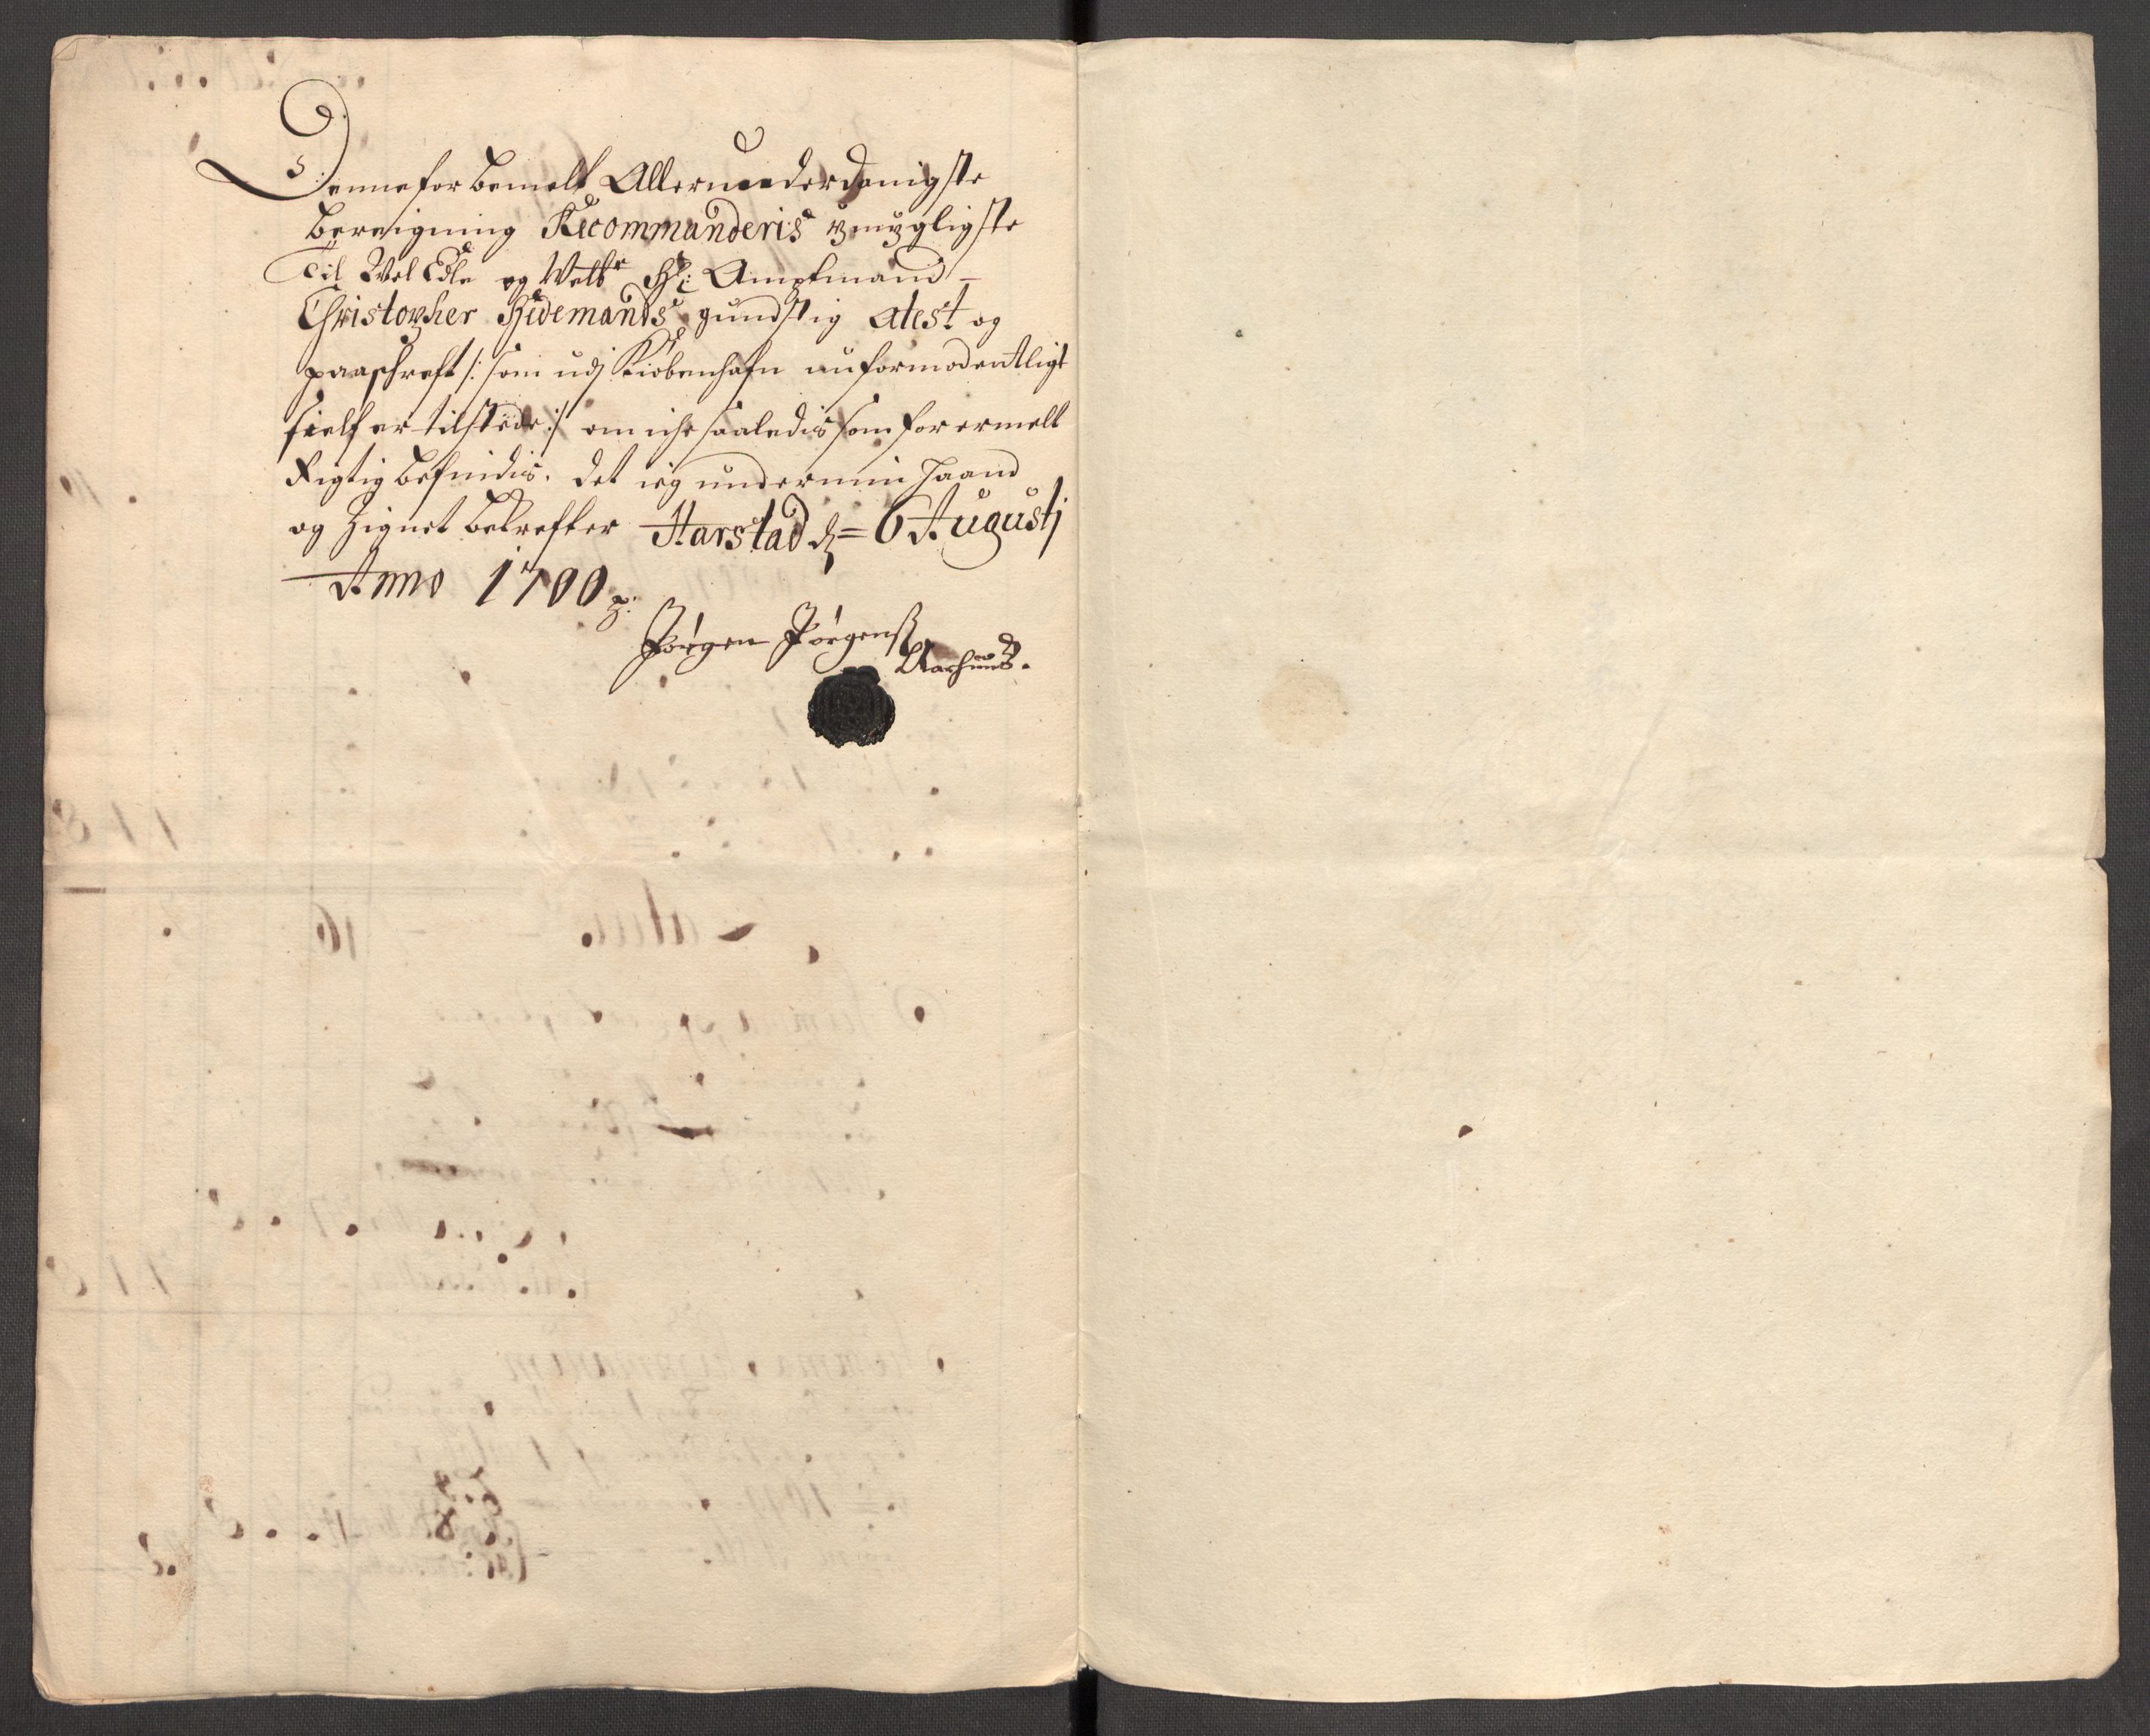 Denne forbemelt Allerunderdanigste
Bereigning Recommanderis ÿmÿgligste
Til Wel Edle og Welb^r Hr: Amptmand
Christopher Hedemands gundstig atest og
paaschreft /: som udj Kiøbenhafn nu formodentligt
sielf er tilstede :/ om iche saaledis som for ermelt
Rigtig befindis. det ieg under min Haand
og Zignet bekrefter Harstad d= 6 Augustj
Anno 1700
Jørgen Jørgenß
Aarhuus.